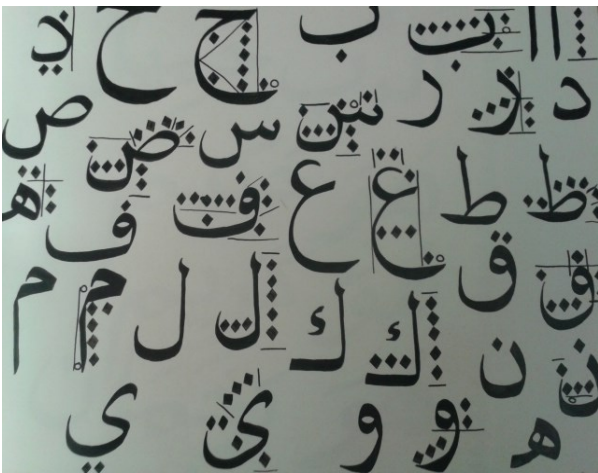 ا ا ب ب ح ح د
د ر ر س س ص ص
ط ط ع ع ف ف ه
ق ق ك ك ل ل م م
ن ن ه و و ي ي